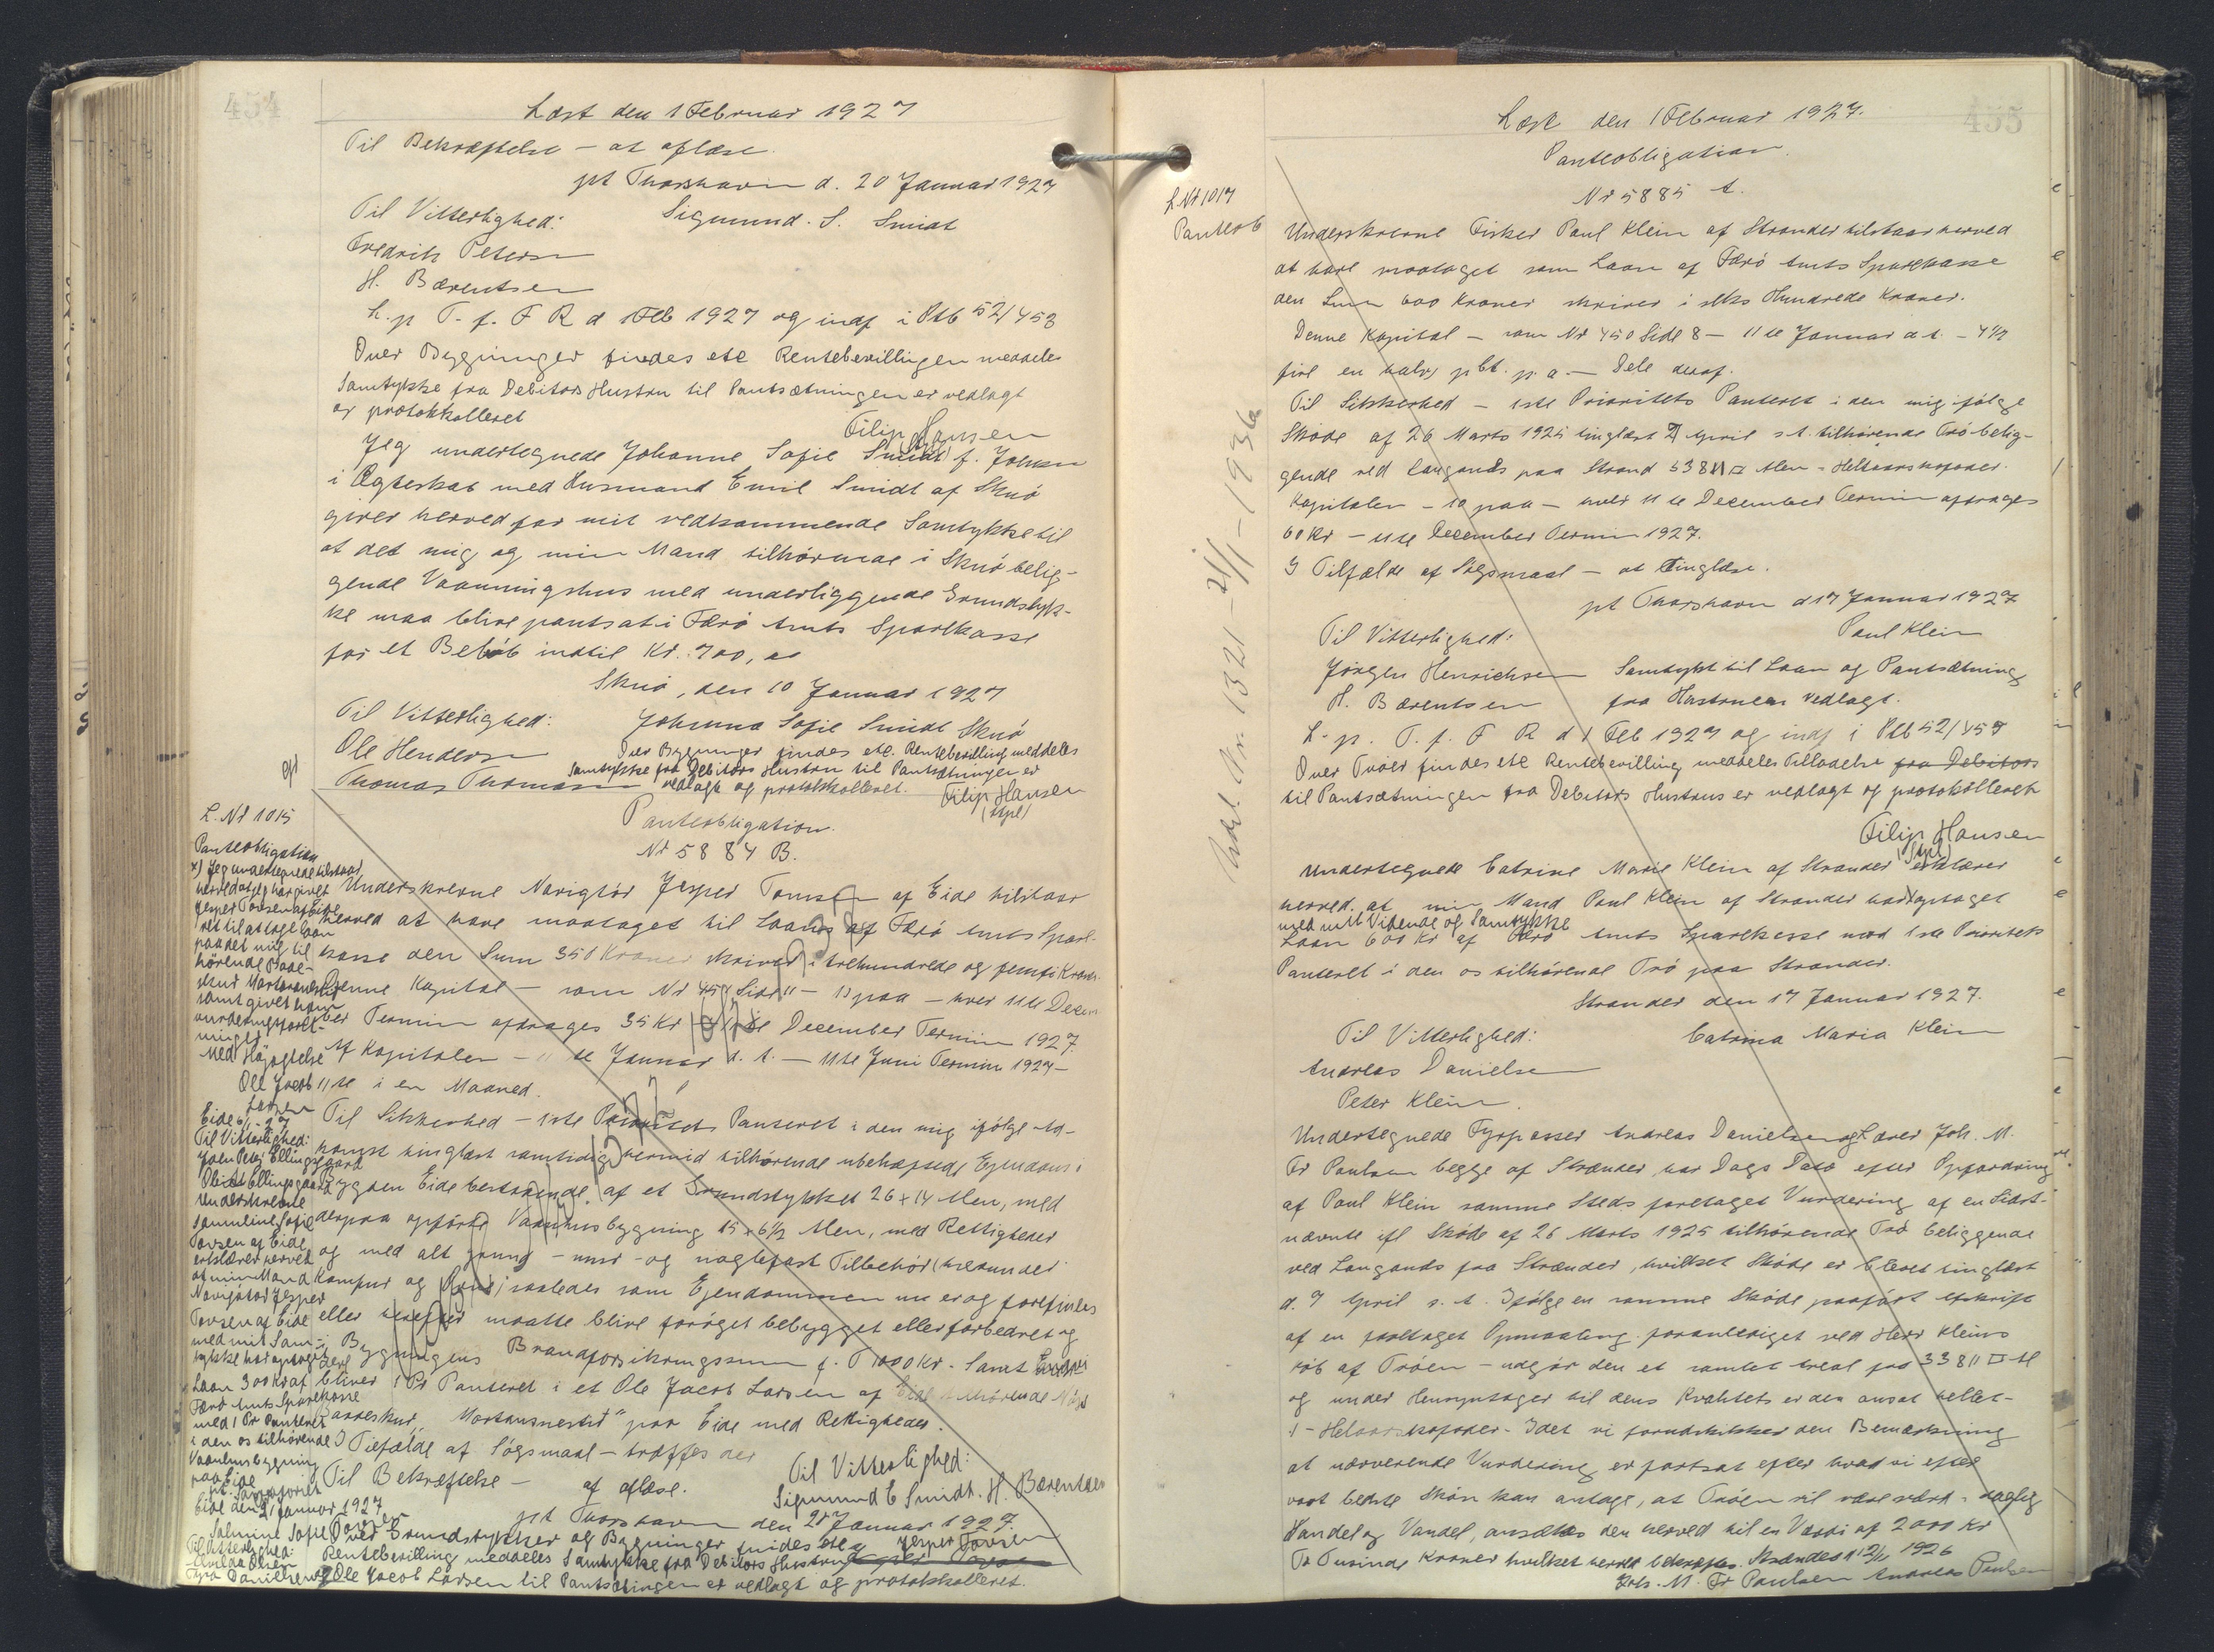 454
Læst den 1 Februar 1927
Til Bekræftelse - at aflæse.
pt Thorshavn d. 20 Januar 1927
Til Vitterlighed: Sigmund. S. Smidt
Fredrik Petersen
H. Bærentsen
L. p T. f. F R d 1 Feb 1927 og indf i Ptb 52/453
Over Bygninger findes etc Rentebevillingen meddeles
Samtykke fra Debitors Hustru til Pantsætningen er vedlagt
og protokkolleret
Filip Hansen
(Spl)
Jeg undertegnede Johanne Sofie Smidt f. Johnsen
i Ægteskab med Husmand Emil Smidt af Skuø
giver herved for mit vedkommende Samtykke til
at det mig og min Mand tilhørende i Skuø belig-
gende Vaaningshus med underliggende Grundstyk-
ke maa blive pantsat i Færø Amts Sparekasse
for et Beløb indtil Kr. 700,00
Skuø, den 10 Januar 1927
Til Vitterlighed: Johanna Sofie Smidt Skuø
Ole Hendersen
Thomas Thomasen
Over Bygninger findes etc. Rentebevilling meddeles
Samtykke fra Debitors Hustru til Pantsætningen er
vedlagt og protokkolleret. Filip Hansen
(Spl)
L. Nr 1015
Panteobligation
Panteobligation.
Nr 5884 B.
Underskrevne Navigtør Jesper Tousen af Eide tilstaar
herved at have modtaget til Laans af Færø Amts Spare-
kasse den Sum 350 Kroner skriver i trehundrede og femti Kroner.
Denne Kapital - som Nr 454 Side 11 - 10 paa - hver 11te Decem
ber Termin afdrages 35 Kr - 11te December Termin 1927.
Af Kapitalen - 11te Januar d. A. - 11te Juni Termin 1927 -
11te i en Maaned.
Til Sikkerhed - 1ste Prioritets Panteret i den mig ifølge Ad-
komst tinglæst samtidig hermed tilhørende ubehæftede Ejendom i
Bygden Eide bestaaende af et Grundstykket 26 x 14 Alen, med
derpaa opførte Vaanhusbygning 15 x 6½ Alen, med Rettigheder
og med alt grund - mur - og naglefast Tilbehør (herunder
Komfur og Ovne) saaledes som Ejendommen nu er og forefindes
eller herefter maatte blive forøget bebygget eller forbedret og
i Bygningens Brandforsikringssum f. T 1000 Kr. Samt
bliver 1 Pr Panteret i et Ole Jacob Larsen af Eide tilhørende
Baadeskur, "Mortansnestið" paa Eide med Rettigheder.
I Tilfælde af Søgsmaal - træffes der
Til Bekræftelse - af aflæse. Til Vitterlighed:
Sigmund E Smidt. H. Bærentsen
pt Thorshavn den 21 Januar 1927.
Jesper Tousen
Over Grundstykker og Bygninger findes etc
Rentebevilling meddeles Samtykke fra Debitors Hustru
og Ole Jacob Larsen til Pantsætningen er vedlagt og protokkolleret.
x) Jeg undertegnede tilstaar
herved at jeg har givet
Jesper Tousen af Eide
ret til at tage Laan
paa det mig til
hørende Baade-
skur Mortansnestið
samt givet ham
vurderingsforret-
ninger
Med Højagtelse
Ole Jacob
Larsen
Eide 6/1-27
Til Vitterlighed:
John Peter Ellingsgaard
Ole Ellingsgaard
Underskrevne
Salmine Sofie
Tousen af Eide
erklærer herved
at min Mand
Navigatør Jesper
Tousen af Eide
med mit Sam-
tykke har optaget
Laan 300 Kr af
Færø Amts Sparekasse
med 1 Pr Panteret
i den os tilhørende
Vaanhusbygning
paa Eide
Eide den 21 Januar 1927
Salmine Sofie Tousen
Til Vitterlighed:
455
Læst den 1 Februar 1927.
L Nr 1017
Panteob
Udsl. Nr. 1321 - 21/1 - 1936
Panteobligation.
Nr 5885 A.
Underskrevne Fisker Paul Klein af Strander tilstaar herved
at have modtaget som Laan af Færø Amts Sparekasse
den Sum 600 Kroner skriver i seks Hundrede Kroner.
Denne Kapital - som Nr 450 Side 8 - 11te Januar d. A. - 4½
fire en halv pCt. p. a - Dele deraf.
Til Sikkerhed - 1ste Prioritets Panteret i den mig ifølge
Skøde af 26 Marts 1925 tinglæst 7 April s A. tilhørende Trø belig-
gende ved Langands paa Strand 3811 □ Alen - Helaarskofoder.
Kapitalen - 10 paa - hver 11te December Termin afdrages
60 Kr - 11te December Termin 1927.
I Tilfælde af Søgsmaal - at tinglæse.
pt Thorshavn d 17 Januar 1927
Til Vitterlighed: Paul Klein
Jørgen Henrichsen Samtykt til Laan og Pantsætning
H. Bærentsen fra Hustruen vedlagt.
L. p. T. f. F R d 1 Feb 1927 og indf i Ptb 52/455
Over Trøer findes etc Rentebevilling meddeles Tilladelse fra Debitors
til Pantsætningen fra Debitors Hustrus er vedlagt og protokolleret
Filip Hansen
(Spl)
Undertegnede Catrine Marie Klein af Strander erklærer
herved, at min Mand Paul Klein af Strander har optaget
med mit Vidende og Samtykke
Laan 600 Kr af Færø Amts Sparekasse mod 1ste Prioritets
Panteret i den os tilhørende Trø paa Strander.
Strander den 17 Januar 1927.
Til Vitterlighed: Catrina Maria Klein
Andreas Danielsen
Peter Klein.
Undertegnede Fyrpasser Andreas Danielsen og Lærer Joh. M.
Fr Poulsen begge af Strænder, har Dags Dato efter Opfordring
af Paul Klein samme Steds foretaget Vurdering af en Sidst-
nævnte ifl Skøde af 26 Marts 1925 tilhørende Trø beliggende
ved Langands paa Strænder, hvilket Skøde er blevet tinglæst
d. 7 April s. A. Ifølge en samme Skøde paaført Afskrift
af en foretaget Opmaaling foranlediget ved Herr Kleins
Køb af Trøen - udgør den et samlet Areal paa 33811 □ Al
og under Hensyntagen til dens Kvalitets er den ansat
1 - Helaarskofoder - Idet vi forudskikker den Bemærkning
at nærværende Vurdering er fortsat efter hvad vi efter
vort bedste Skøn kan antage, at Trøen vil være værd i daglig
Handel og Vandel, ansættes den herved til en Værdi af 2000 Kr
To Tusinde Kroner hvilket herved bekræftes. Strændes d 12/11 1926
Joh. M. Fr Poulsen Andreas